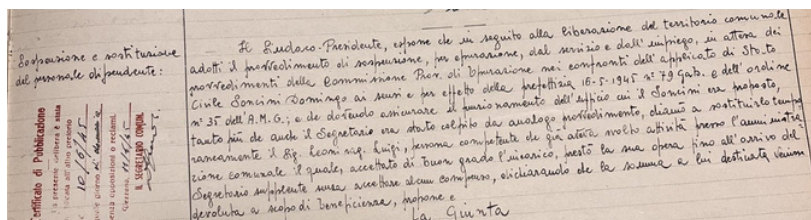 Sospensione e sostituzione
del personale dipendente:
Certificato di Pubblicazione
La presente delibera è stata
pubblicata all'albo pretorio
10/6/45
senza opposizioni o reclami.
IL SEGRETARIO COMUN.
Il Sindaco-Presidente, espone che in seguito alla liberazione del territorio comunale
adottò il provvedimento di sospensione, per epurazione, dal servizio e dall'impiego, in attesa dei
provvedimenti della Commissione Prov. di Epurazione nei confronti dell'applicato di Stato
Civile Soncini Domingo ai sensi e per effetto della prefettizia 16-5-1945 n° 79 Gab. e dell'ordine
n° 35 dell'A.M.G.; e che dovendo assicurare il funzionamento dell'ufficio cui il Soncini era preposto,
tanto più che anche il Segretario era stato colpito da analogo provvedimento, chiamò a sostituirlo tempo
raneamente il Sig. Leoni rag. Luigi, persona competente che già aveva svolto attività presso l'ammi nistra
zione comunale il quale, accettato di buon grado l'incarico, prestò la sua opera fino all'arrivo del
Segretario supplente senza accettare alcun compenso, dichiarando che la somma a lui destinata venisse
devoluta a scopo di beneficienza, propone e
La Giunta